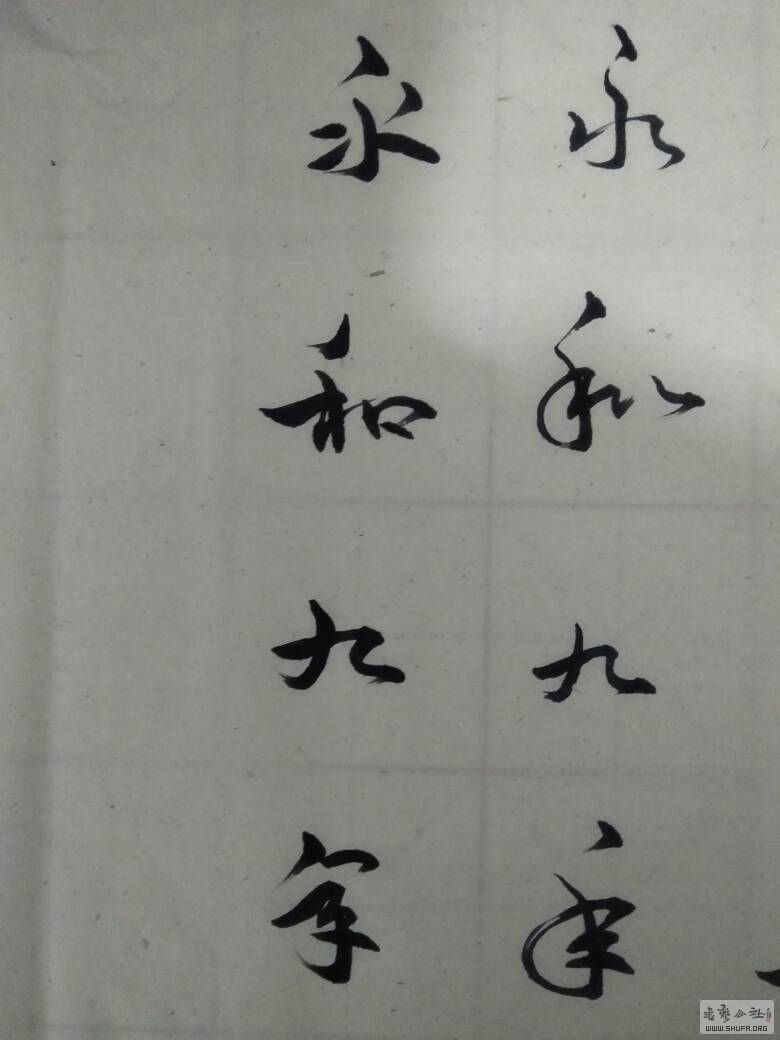 永和九年
永和九年
书艺公社
WWW.SHUFA.ORG